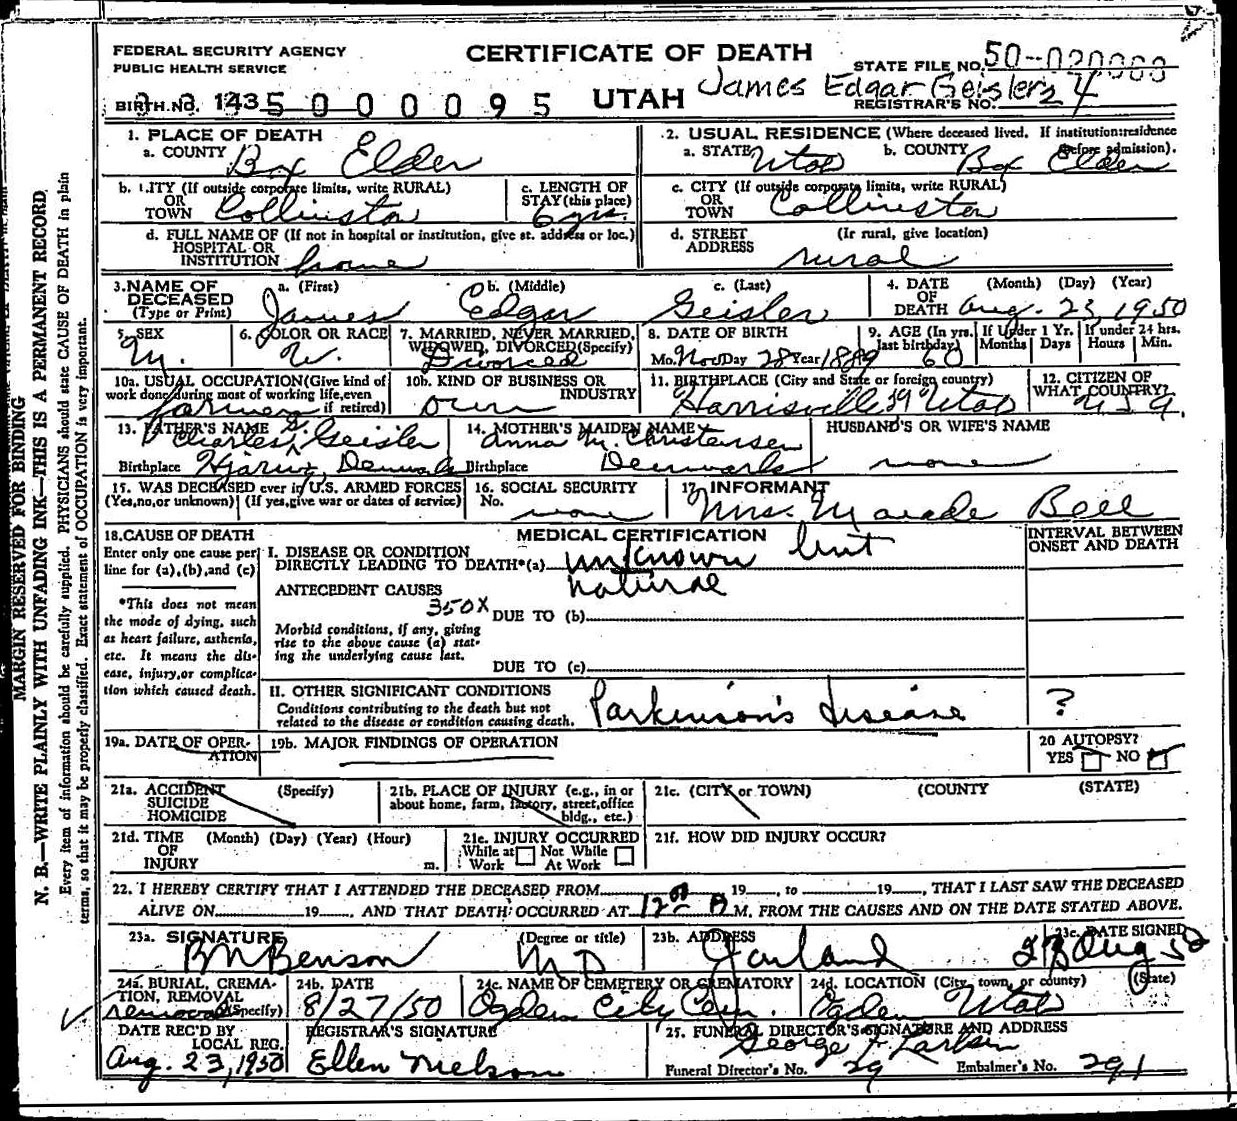 FEDERAL SECURITY AGENCY
PUBLIC HEALTH SERVICE
CERTIFICATE OF DEATH
STATE FILE NO. 50-020
James Edgar Geisler
BIRTH NO. 1435 0 0 0 0 9 5
UTAH
REGISTRAR'S NO. 24
1. PLACE OF DEATH
a. COUNTY Box Elder
2. USUAL RESIDENCE (Where deceased lived. If institution:residence before admission).
a. STATE Utah b. COUNTY Box Elder
b. CITY (If outside corporate limits, write RURAL) OR TOWN Collinston
c. LENGTH OF STAY (this place) 6 yrs.
c. CITY (If outside corporate limits, write RURAL) OR TOWN Collinston
d. FULL NAME OF (If not in hospital or institution, give st. address or loc.) HOSPITAL OR INSTITUTION home
d. STREET ADDRESS (If rural, give location) rural
3. NAME OF DECEASED (Type or Print)
a. (First) James b. (Middle) Edgar c. (Last) Geisler
4. DATE OF DEATH (Month) (Day) (Year) Aug. 23, 1950
5. SEX M.
6. COLOR OR RACE W.
7. MARRIED, NEVER MARRIED, WIDOWED, DIVORCED(Specify) Divorced
8. DATE OF BIRTH Mo. Nov Day 28 Year 1889
9. AGE (In yrs. last birthday) 60
If Under 1 Yr. Months Days
If under 24 hrs. Hours Min.
10a. USUAL OCCUPATION(Give kind of work done during most of working life,even if retired) farmer
10b. KIND OF BUSINESS OR INDUSTRY own
11. BIRTHPLACE (City and State or foreign country) Harrisville 29 Utah
12. CITIZEN OF WHAT COUNTRY? U.S.A.
13. FATHER'S NAME Charles Geisler
Birthplace Denmark
14. MOTHER'S MAIDEN NAME Anna M. Christensen
Birthplace Denmark
HUSBAND'S OR WIFE'S NAME
none
15. WAS DECEASED ever in U.S. ARMED FORCES
(Yes,no,or unknown) (If yes,give war or dates of service)
16. SOCIAL SECURITY No. none
17. INFORMANT
Mrs. Maude Bell
18. CAUSE OF DEATH
Enter only one cause per line for (a),(b),and (c)
*This does not mean the mode of dying, such as heart failure, asthenia, etc. It means the disease, injury,or complication which caused death.
MEDICAL CERTIFICATION
INTERVAL BETWEEN ONSET AND DEATH
I. DISEASE OR CONDITION DIRECTLY LEADING TO DEATH*(a) unknown but
natural
ANTECEDENT CAUSES
350X
DUE TO (b)
Morbid conditions, if any, giving rise to the above cause (a) stating the underlying cause last.
DUE TO (c)
II. OTHER SIGNIFICANT CONDITIONS
Conditions contributing to the death but not related to the disease or condition causing death.
Parkinson's disease ?
19a. DATE OF OPERATION
19b. MAJOR FINDINGS OF OPERATION
20 AUTOPSY?
YES NO
21a. ACCIDENT SUICIDE HOMICIDE (Specify)
21b. PLACE OF INJURY (e.g., in or about home, farm, factory, street,office bldg., etc.)
21c. (CITY or TOWN) (COUNTY (STATE)
21d. TIME OF INJURY (Month) (Day) (Year) (Hour) m.
21e. INJURY OCCURRED
While at Work Not While At Work
21f. HOW DID INJURY OCCUR?
22. I HEREBY CERTIFY THAT I ATTENDED THE DECEASED FROM 19 , to 19 , THAT I LAST SAW THE DECEASED
ALIVE ON 19 , AND THAT DEATH OCCURRED AT 12 00 A M. FROM THE CAUSES AND ON THE DATE STATED ABOVE.
23a. SIGNATURE (Degree or title)
B N Benson MD
23b. ADDRESS Garland
23c. DATE SIGNED Aug 50
24a. BURIAL, CREMATION, REMOVAL (Specify) removal
24b. DATE 8/27/50
24c. NAME OF CEMETERY OR CREMATORY Ogden City Cem.
24d. LOCATION (City, town, or county) (State) Ogden Utah
DATE REC'D BY LOCAL REG. Aug. 23, 1950
REGISTRAR'S SIGNATURE Ellen Nielson
25. FUNERAL DIRECTOR'S SIGNATURE AND ADDRESS
George F Larkin
Funeral Director's No. 29 Embalmer's No. 291
MARGIN RESERVED FOR BINDING
N. B.—WRITE PLAINLY WITH UNFADING INK—THIS IS A PERMANENT RECORD
Every item of information should be carefully supplied. PHYSICIANS should state CAUSE OF DEATH in plain
terms, so that it may be properly classified. Exact statement of OCCUPATION is very important.